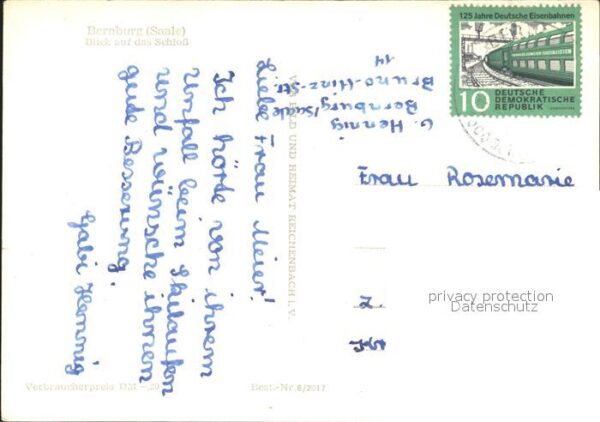 Bernburg (Saale)
Blick auf das Schloß
Liebe Frau Meier!
Ich hörte von ihrem
Unfall beim Skilaufen
und wünsche ihnen
gute Besserung.
Gabi Hennig
G. Hennig
Bernburg/Saale
Bruno-Hinz-Str.
14
BILD UND HEIMAT REICHENBACH i. V.
125 Jahre Deutsche Eisenbahnen
10
DEUTSCHE
DEMOKRATISCHE
REPUBLIK
Frau Rosemarie
privacy protection
Datenschutz
Verbraucherpreis DM -,20
Best.-Nr. 6/2017